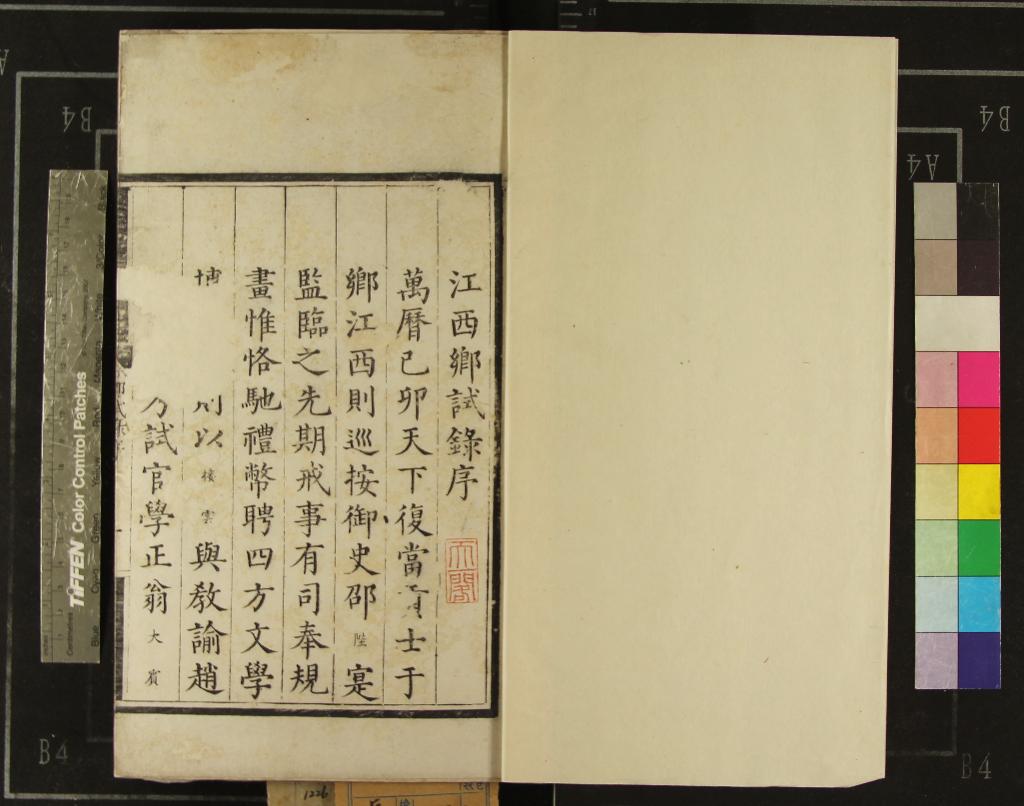 江西鄉試錄序
天閣
萬曆己卯天下復當貢士于
鄉江西則巡按御史邵陛寔
監臨之先期戒事有司奉規
畫惟恪馳禮幣聘四方文學
博
以接雲與教諭趙
乃試官學正翁大賓
B4
B4
A4
B4
B4
TIFFEN Color Control Patches
1226